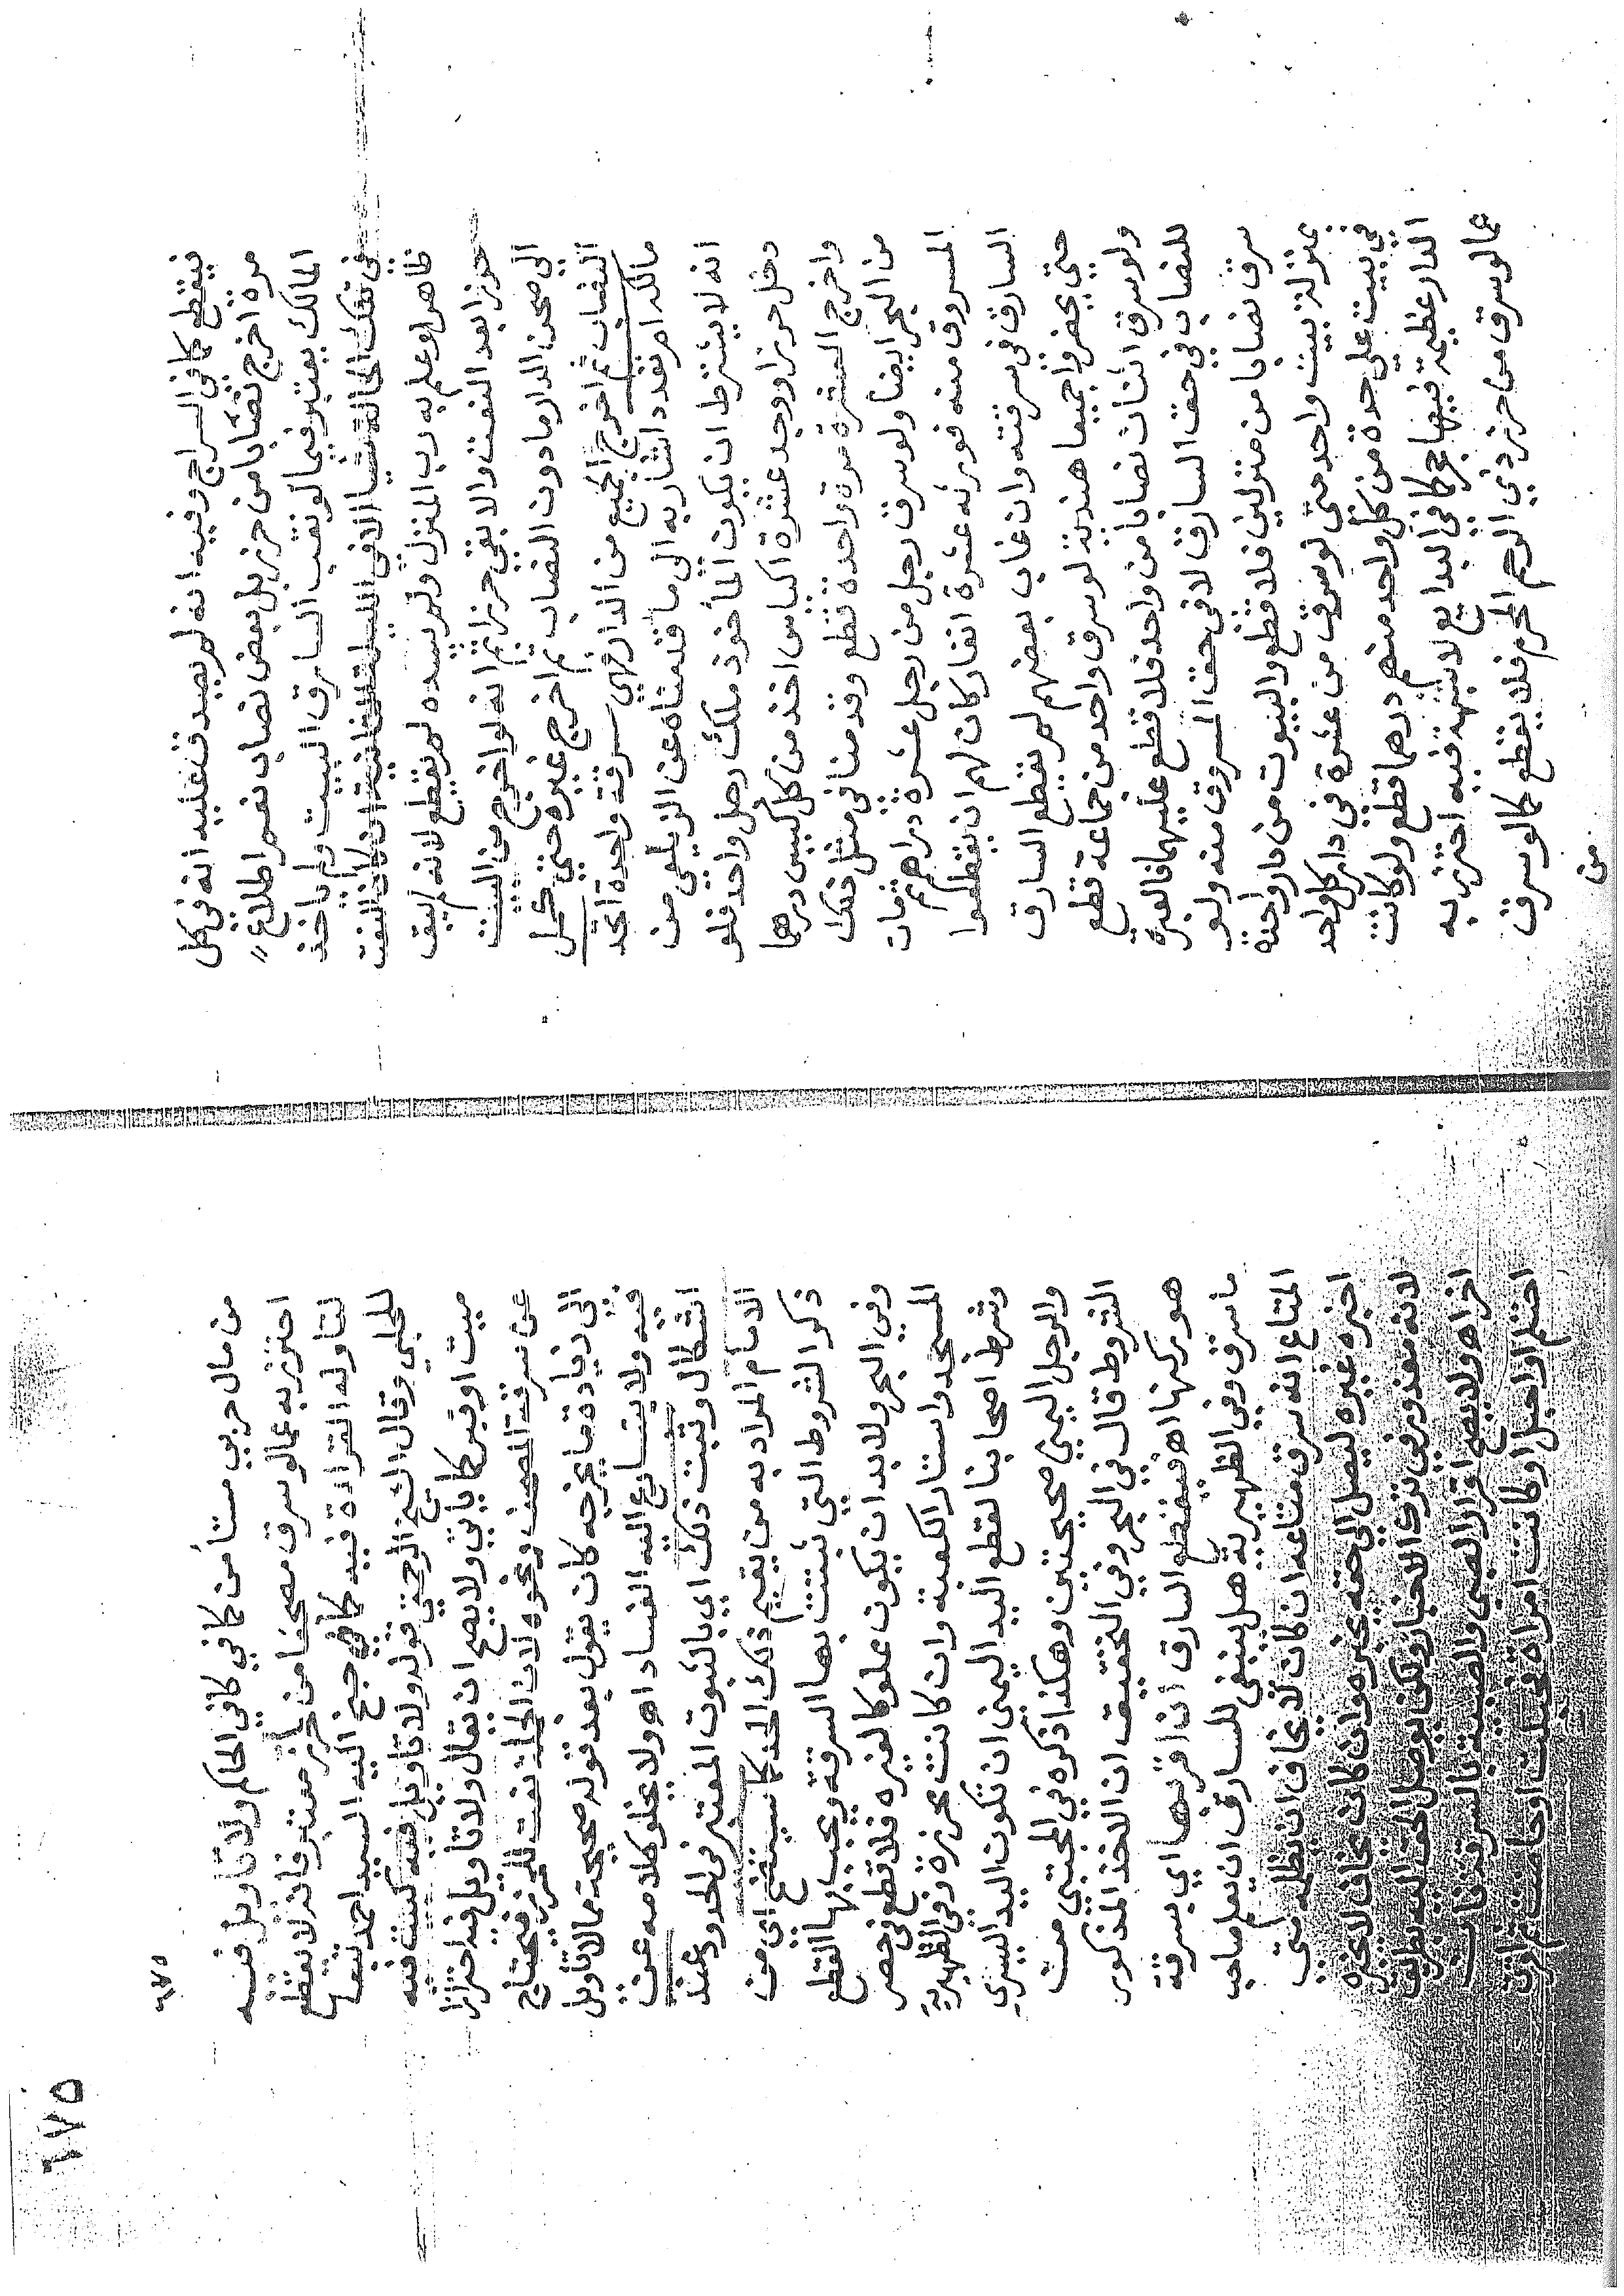 فيقطع كما في السراج وفيه انه لم يصدق عليه انه في كل
مرة اخرج نصابا من حرز بل بعض نصاب نعم اطلاع
المالك يعتبر فيما لو نقب السارق البيت ولم ياخذ
في تلك الحالة شيا الا في الليلة الثانية ان كان النقب
ظاهرا وعلم به رب المنزل ولم يسده لم يقطع لانه لم يبق
حرزا بعد النقب والا بقي حرزا ثم انه لو اخرج من البيت
الى صحن الدار ما دون النصاب ثم اخرج غيره حتى كمل
النصاب ثم اخرج الجميع من الدار فهي سرقة واحدة اتحد
مالكه ام تعدد اشار به الى ما قدمناه عن الزيلعي من
انه لا يشترط ان يكون المأخوذ ملك رجل واحد فلو
دخل حرزا ووجد عشرة اكياس اخذ من كل كيس درهما
واخرج العشرة مرة واحدة قطع وقدمنا في مثل ذلك
من البحر ايضا ولو سرق رجل من رجل عشرة دراهم ثم مات
المسروق منه فورثه عشرة انفار كان لهم ان يقطعوا
السارق في سرقته وان غاب بعضهم لم يقطع السارق
حتى يحضروا جميعا هندية لو سرق واحد من جماعة قطع
ولو سرق اثنان نصابا من واحد فلا قطع عليهما فالعبرة
للنصاب في حق السارق لا في حق المسروق منه ولو
سرق نصابا من منزلين فلا قطع والبيوت من دار واحدة
بمنزلة بيت واحد حتى لو سرق من عشرة في دار كل واحد
في بيت على حدة من كل واحد منهم درهما قطع ولو كانت
الدار عظيمة فيها حجر كما في البدايع لا شبهة فيه احترز به
عما لو سرق من حرز ذي الرحم المحرم فلا يقطع كما لو سرق
من
٦٧٥
٦٧٥
من مال حربي مستأمن كما في كافي الحاكم ولا تأويل فيه
احترز به عما لو سرق مصحفا من حرز معتبر فانه لا يقطع
لتأوله القراءة فيه كما في جنح اليه السيد احمد تبعا
للحلبي وقال الشيخ الرحمتي قوله ولا تأويل فيه كبيت فيه
ميت او قبر كما يأتي ولا يصح ان يقال ولا تأويل فيه احترازا
عن سرقة المصحف ونحوه لان الجملة نعت للحرز فيحتاج
الى زيادة ما يخرجه كان يقول بعد قوله صحيحة مما لا تأويل
فيه ولا يتسارع اليه الفساد اهـ ولا يخلو كلامه عن
اشكال وثبت ذلك اي بالثبوت المعتبر في الحدود عند
الامام المراد به من يقيم ذلك الحد كما سيتضح اي من
ذكر الشروط التي ثبتت بها السرقة ويجب بها القطع
وفي البحر ولا بد ان يكون علو كالغيره فلا قطع في حصر
المسجد واستار الكعبة وان كانت محرزة وفي الظهيرية
وشرط اصحابنا لقطع اليد اليمنى ان تكون اليد اليسرى
والرجل اليمنى صحيحتين وهكذا ذكره في المجتبى من
الشروط قال في البحر وفي التحقيق ان الاخذ المذكور
هو ركنها اهـ فيقطع السارق ان اقر بها اي بسرقة
ما سرق وفي الظهيرية هل ينبغي للسارق ان يعلم صاحب
المتاع انه سرق متاعه ان كان لا يخاف ان يظلمه متى
اخبره غيره ليصل الى حقه يخبره وان كان يخاف لا يخبره
لانه معذور في ترك الاخبار ولكن يوصل الحق اليه بطريق
اخر اهـ ولا يصح اقرار الصبي والصبية بالسرقة فان
احتلم او احبل او كانت امرأة فحبلت او حاضت ثم اقرت